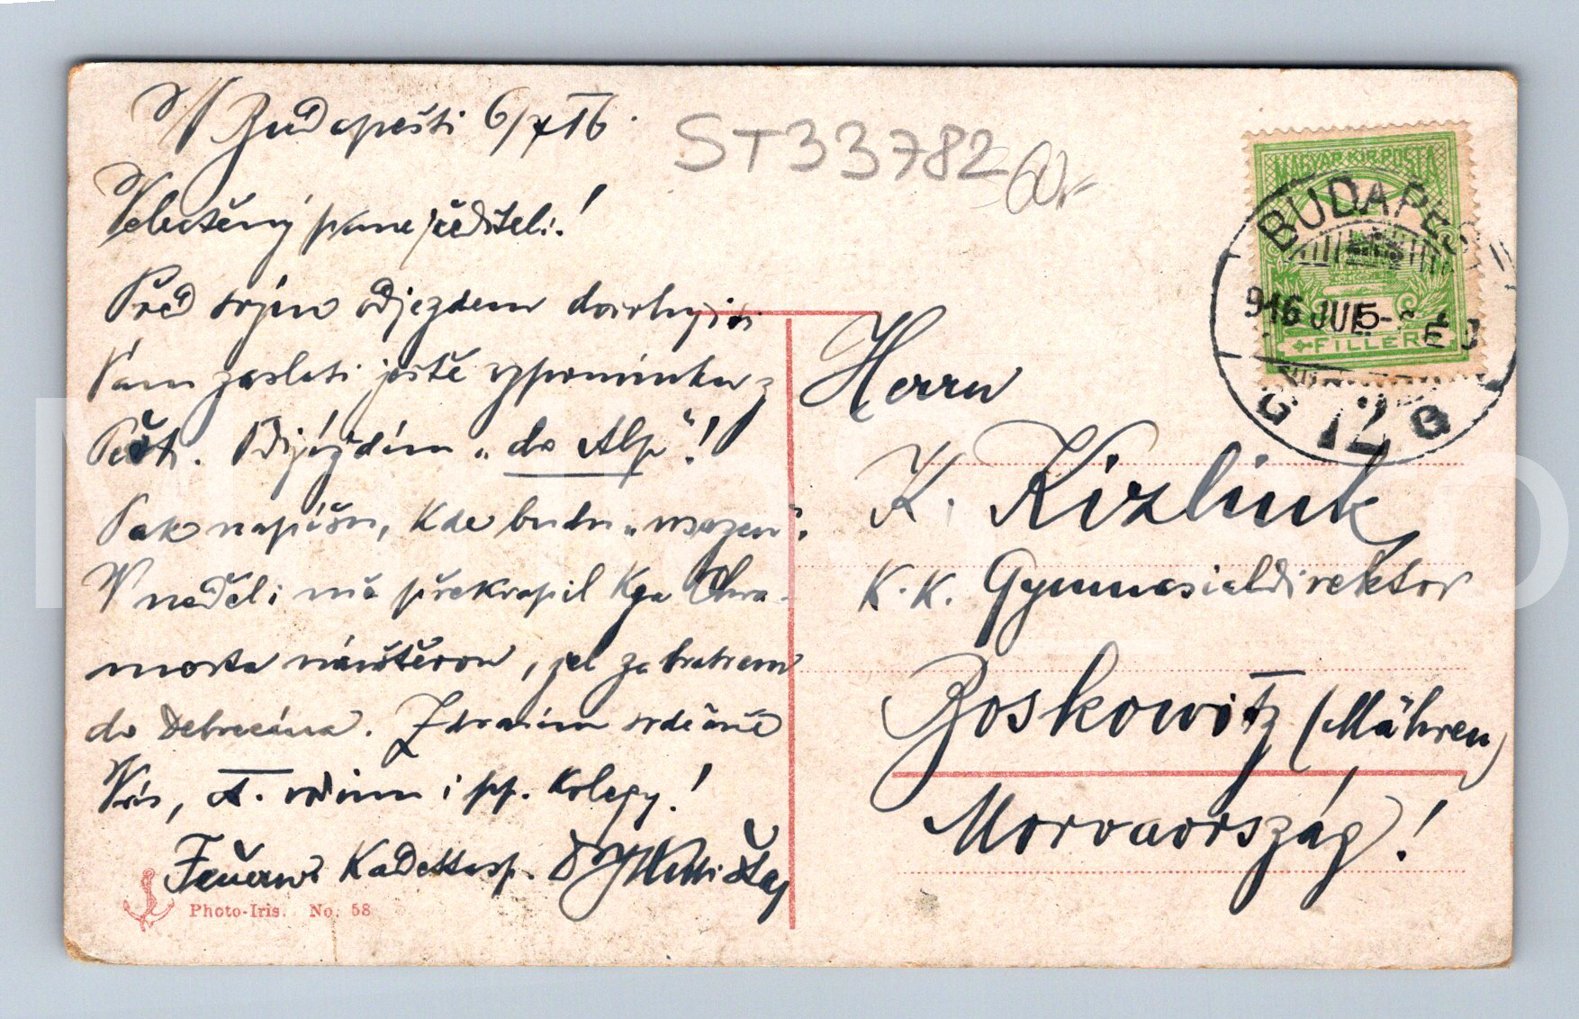 V Budapešti 6/7 16.
ST33782 60,-
Velectěný pane řediteli!
Před svým odjezdem dovoluji si
Vám zaslati ještě vzpomínku z
Pešti. Odjíždím „do Alp“!
Pak napíšu, kde budu „vsazen“.
V neděli mě překvapil Kga Chra-
mosta návštěvou, jel za bratrem
do Debrecína. Zdravím srdečně
Vás, ct. rodinu i pp. kolegy!
Feuerw. Kadettasp. Dr
Photo-Iris. No. 58
MAGYAR KIR. POSTA
BUDAPEST
916 JUL 5
FILLER
12
Herrn
K. Kizlink
K. K. Gymnasialdirektor
Boskowitz (Mähren)
Morvaország!